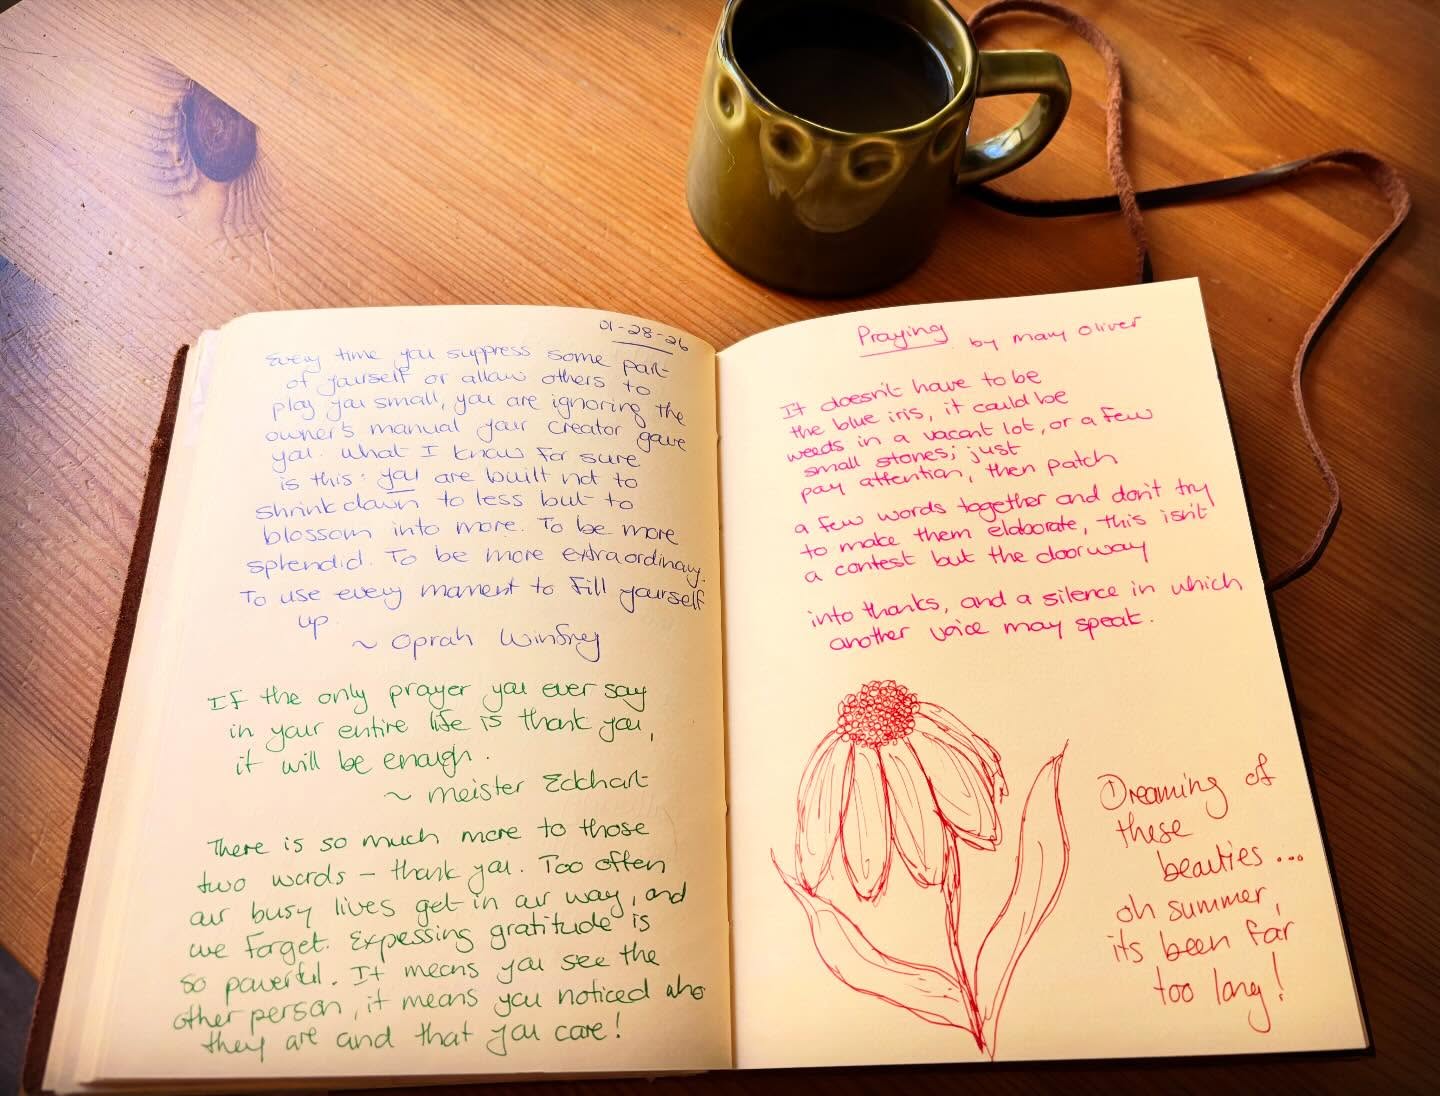 01-28-26
Every time you suppress some part
of yourself or allow others to
play you small, you are ignoring the
owner's manual your creator gave
you. What I know for sure
is this: you are built not to
shrink down to less but to
blossom into more. To be more
splendid. To be more extraordinary.
To use every moment to fill yourself
up.
~ Oprah Winfrey
If the only prayer you ever say
in your entire life is thank you,
it will be enough.
~ Meister Eckhart
There is so much more to those
two words – thank you. Too often
our busy lives get in our way, and
we forget. Expessing gratitude is
so powerful. It means you see the
other person, it means you noticed who
they are and that you care!
Praying by Mary Oliver
It doesn't have to be
the blue iris, it could be
weeds in a vacant lot, or a few
small stones; just
pay attention, then patch
a few words together and don't try
to make them elaborate, this isn't
a contest but the doorway
into thanks, and a silence in which
another voice may speak.
Dreaming of
these
beauties...
oh summer,
its been far
too long!